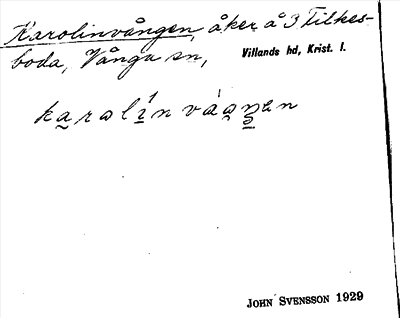 Karolinvången, åker å 3 Tilkes-
boda, Vånga sn, Villands hd, Krist. l.
karolín váŋen
JOHN SVENSSON 1929